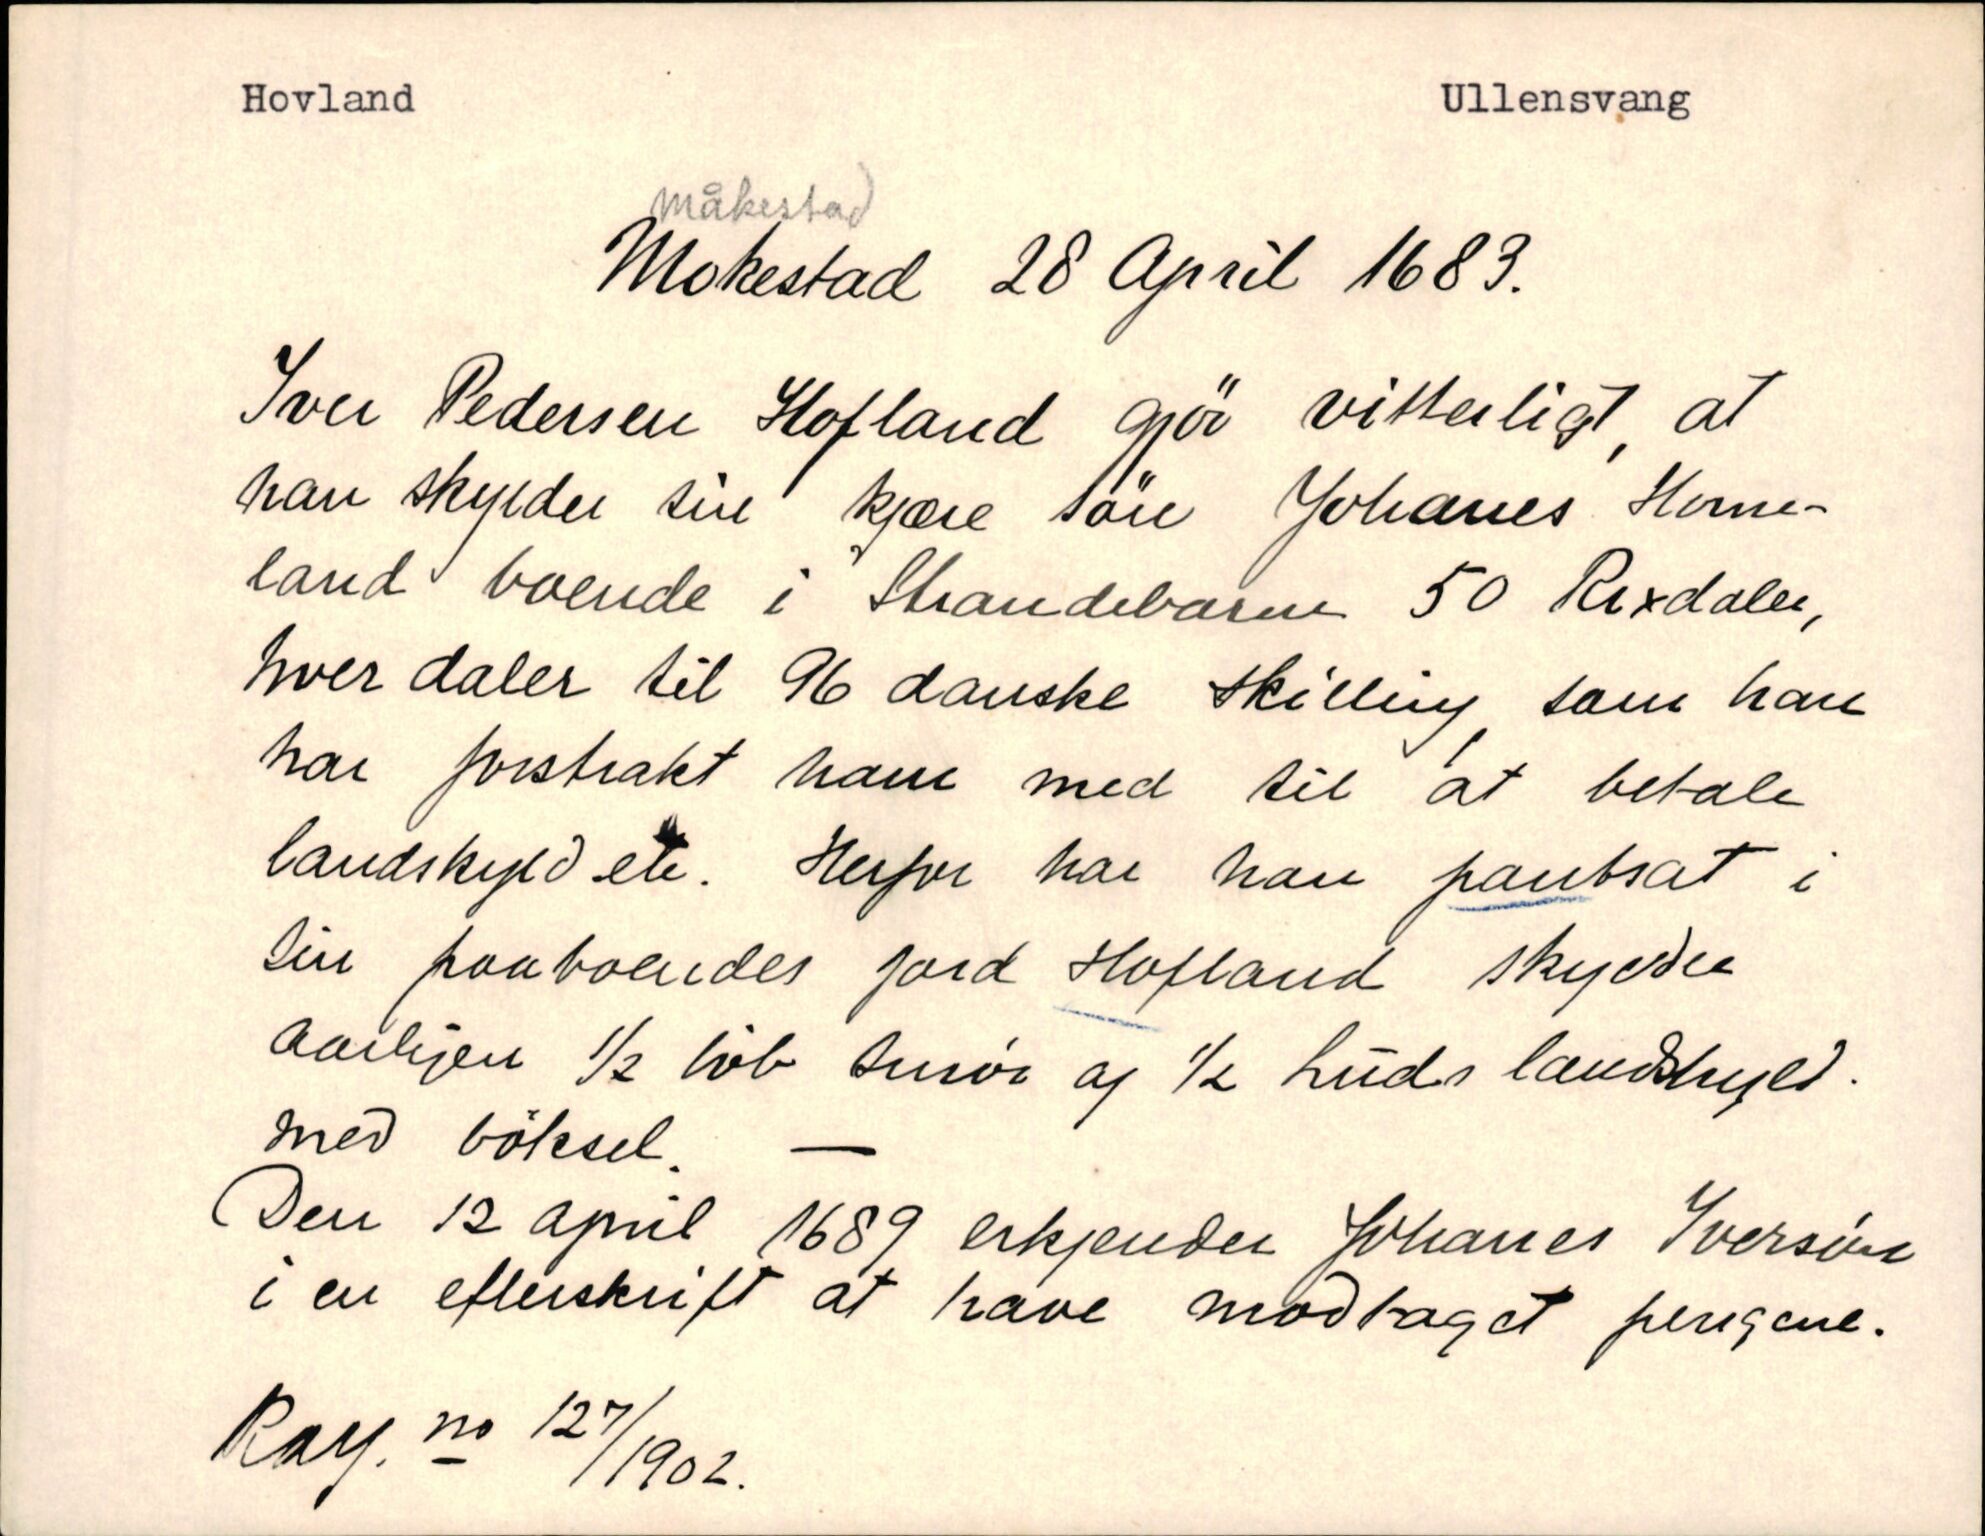 Hovland Ullensvang
Måkestad
Mokestad 28 April 1683.
Iver Pedersen Hofland gjör vitterligt, at
han skylder sin kjære sön Johanes Home-
land boende i Strandebarm 50 Rixdaler,
hver daler til 96 danske skilling, som han
har forstrakt ham med til at betale
landskyld etc. Herfor har han pantsat i
sin paaboendes jord Hofland skylder
aarligen 1/2 löb smör og 1/2 huds landskyld.
med böksel. —
Den 12 april 1689 erkjender Johanes Iversön
i en efterskrift at have modtaget pengene.
Ray. no 127/1902.